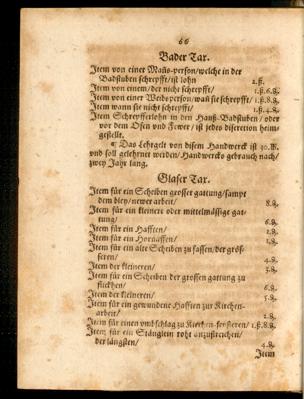 66
Bader Tax.
Item von einer Mañs-person/welche in der
Badstuben schrepfft/ist lohn 2.ß.
Item von einem/der nicht schrepfft/ 1.ß.6.₰.
Item von einer Weibsperson/wañ sie schrepfft/ 1.ß.8.₰.
Item wann sie nicht schrepfft/ 1.ß.4.₰.
Item Schrepfferlohn in den Hauß-Badstuben/oder
vor dem Ofen und Fewer/ist jedes discretion heim-
gestellt.
¶ Das Lehrgelt von disem Handwerck ist 30.
und soll gelehrnet werden/Handwercks gebrauch nach/
zwey Jahr lang.
Glaser Tax.
Item für ein Scheiben grosser gattung/sampt
dem bley/newer arbeit/ 8.₰.
Item für ein kleinere oder mittelmässige gat-
tung/ 6.₰.
Item für ein Hafften/ 1.₰.
Item für ein Hornaffen/ 1.₰.
Item für ein alte Scheiben zu fassen/der grös-
seren/ 4.₰.
Item der kleineren/ 3.₰.
Item für ein Scheiben der grossen gattung zu
flickhen/ 6.₰.
Item der kleineren/ 5.₰.
Item für ein gewundene Hafften zur Kirchen-
arbeit/ 2.₰.
Item für einen umbschlag zu Kirchen-fensteren/ 1.ß.8.₰.
Item für ein Stänglein roht anzustreichen/
der längsten/ 4.₰.
Item